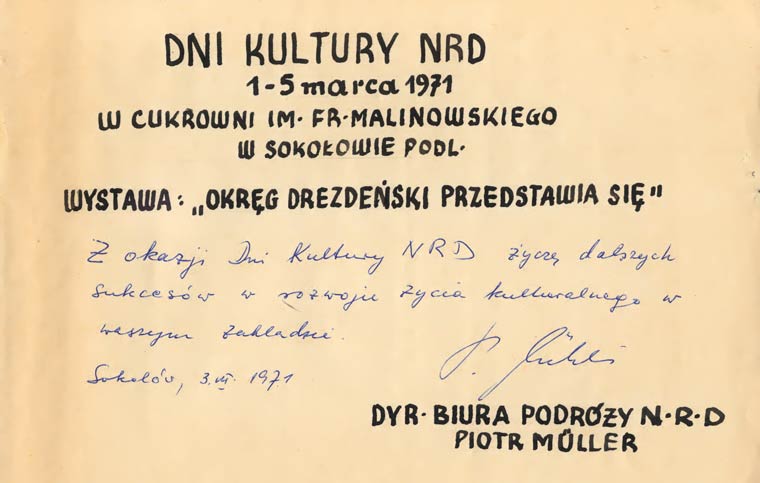 DNI KULTURY NRD
1-5 marca 1971
W CUKROWNI IM. FR. MALINOWSKIEGO
W SOKOŁOWIE PODL.
WYSTAWA: „OKRĘG DREZDEŃSKI PRZEDSTAWIA SIĘ"
Z okazji Dni Kultury NRD życzę dalszych
sukcesów w rozwoju życia kulturalnego w
waszym zakładzie.
Sokołów, 3.III. 1971
DYR. BIURA PODRÓŻY N.R.D
PIOTR MÜLLER